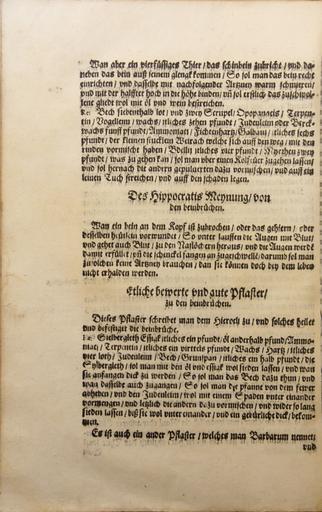 Wan aber ein vierfüssiges Thier / das schinbein zubricht / vnd da-
neben das bein auß seinem glenck kommen / So sol man das bein recht
einrichten / vnd dasselb mit nachfolgender Artzney warm schmieren /
vnd mit der halffter hoch in die höhe binden / vnd
gliedt wol mit öl vnd wein bestreichen.
Bech siebenthalb lot / vnd zwey Scrupel / Opopanacis / Terpen-
tin / Vogelleim / wachs / itliches zehen pfundt / Judenleim oder Berck-
wachs funff pfundt / Ammoniaci / Fichtenhartz / Galbani / itliches sechs
pfundt / der kleinen stücklein Weirach welche sich auff den weg / mit den
rinden vormischt haben / Bdellii itliches vier pfundt / Myrrhen zwey
pfundt / was zu gehen kan / sol man vber einen Kolfeuer zugehen lassen /
vnd sol hernach die andern gepulverten dazu vormischen / vnd auff ein
leinen Tuch streichen / vnd auff den schaden legen.
Des Hippocratis Meynung / von
den beinbrüchen.
Wan ein bein an dem Kopf ist zubrochen / oder das gehirn / oder
desselben heutlein vorwundet / So vnter lauffen die Augen mit Blut /
vnd gehet auch Blut / zu den Naßlöchern heraus / vnd die Augen werden
damit erfüllet / vnd die schenckel fangen an zugeschwellen / darumb sol man
zu solchen keine Artzney brauchen / dan sie können doch bey dem leben
nicht erhalden werden.
Etliche bewerte vnd gute Pflaster /
zu den beinbrüchen.
Dieses Pflaster schreibet man dem Hierocli zu / vnd solches heilet
vnd befestiget die beinbrüche.
Silbergleth Essick itliches ein pfundt / anderhalb pfund / Ammo-
niac / Terpentin / itliches ein vierteil pfundt / Wachs / Hartz / itliches
vier loth / Judenleim / Bech / Grunspan / itliches ein halb pfundt / die
Sylbergleth / sol man mit den öl vnd essick wol sieden lassen / vnd wan
sie anfangen dick zu werden / So sol man das Bech dazu thun / vnd
wan dasselbe auch zugangen / So sol man die pfanne von dem fewer
abheben / vnd den Judenleim / wol mit einem Spaden vnter einander
vormengen / vnd letzlich die andern dazu vormischen / vnd wider so lang
sieden lassen / biß sie wol vnter einander / vnd ein gebürliche dick / bekom-
men.
Es ist auch ein ander Pflaster / welches man Barbarum nennet /
vnd